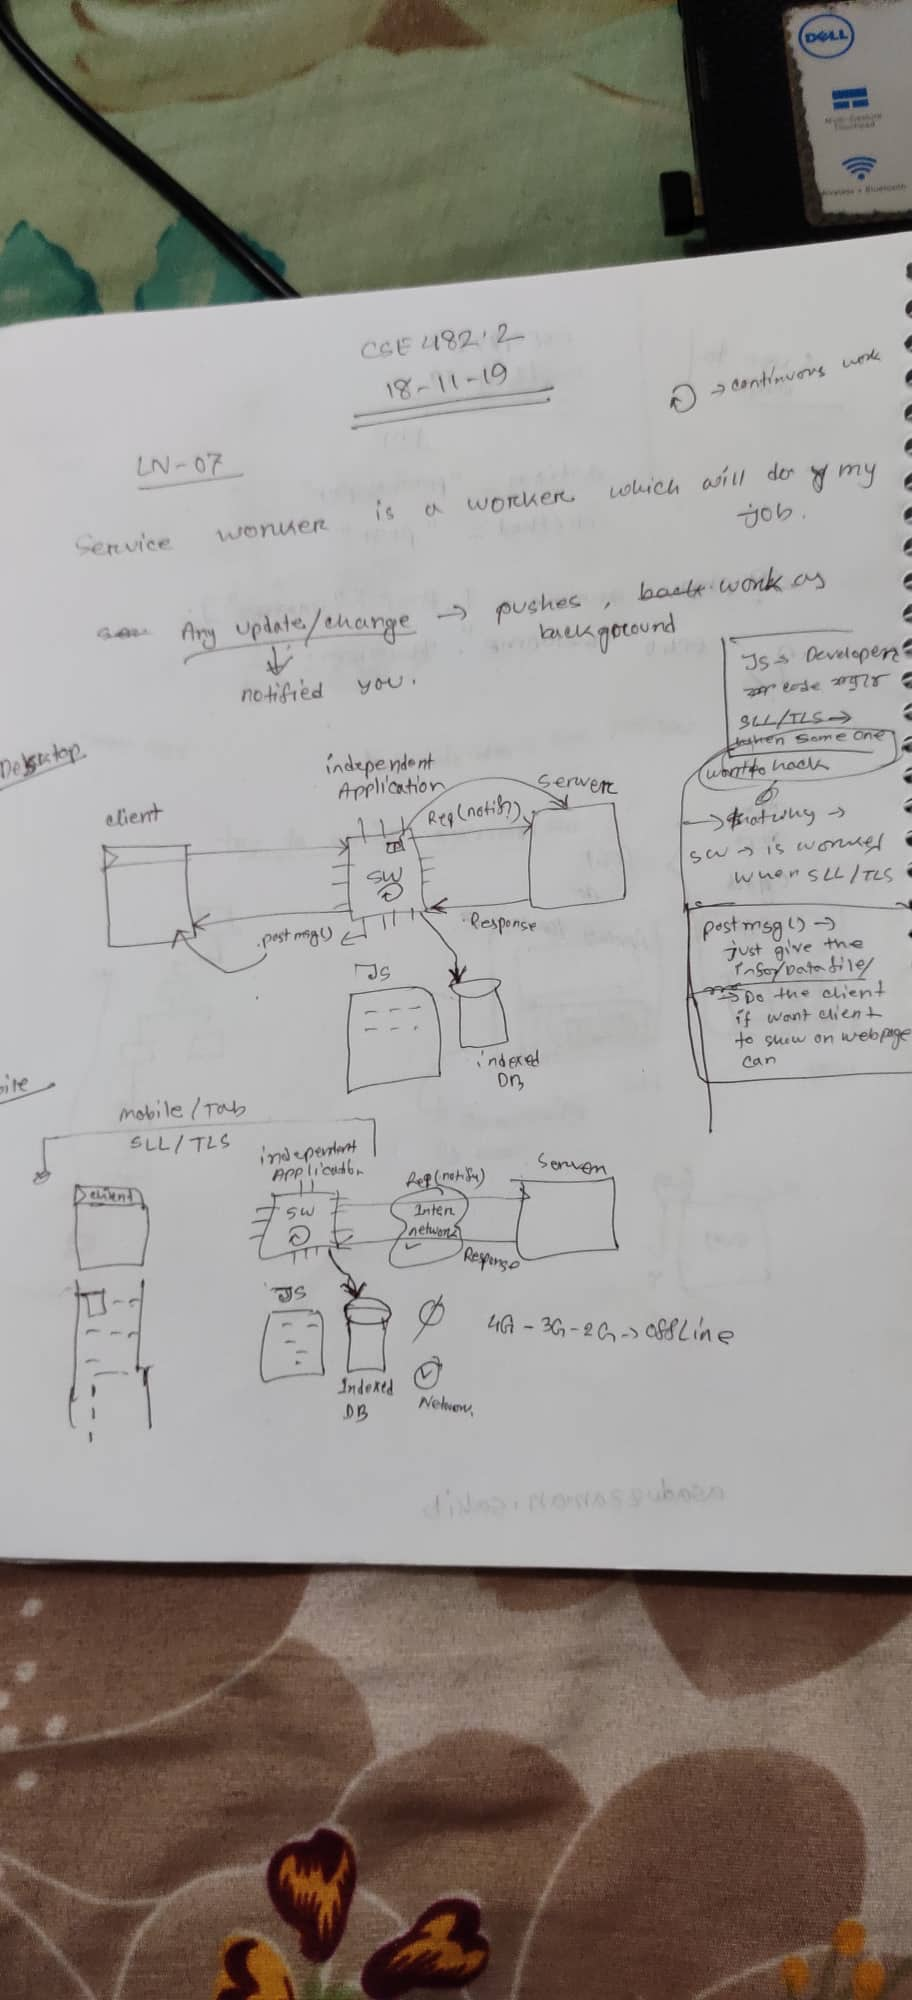 DELL
Multi-Gesture
Touchpad
Wireless + Bluetooth
CSE 482.2
18-11-19
→ continuous work
LN-07
Service worker is a worker which will do my
job.
Any update/change → pushes, work as
background
notified you.
JS → Developer
code
SLL/TLS →
when some one
want to hack
→ that why →
SW → is worked
when SLL/TLS
postmsg() →
just give the
info/data file/
→ Do the client
if want client
to show on webpage
can
Desktop
client
independent
Application
Server
Req(notify)
SW
postmsg()
Response
JS
indexed
DB
mobile/Tab
SLL/TLS
client
independent
Application
SW
Req(notify)
Inter
network
Server
Response
JS
Indexed
DB
4G - 3G - 2G → offline
Network